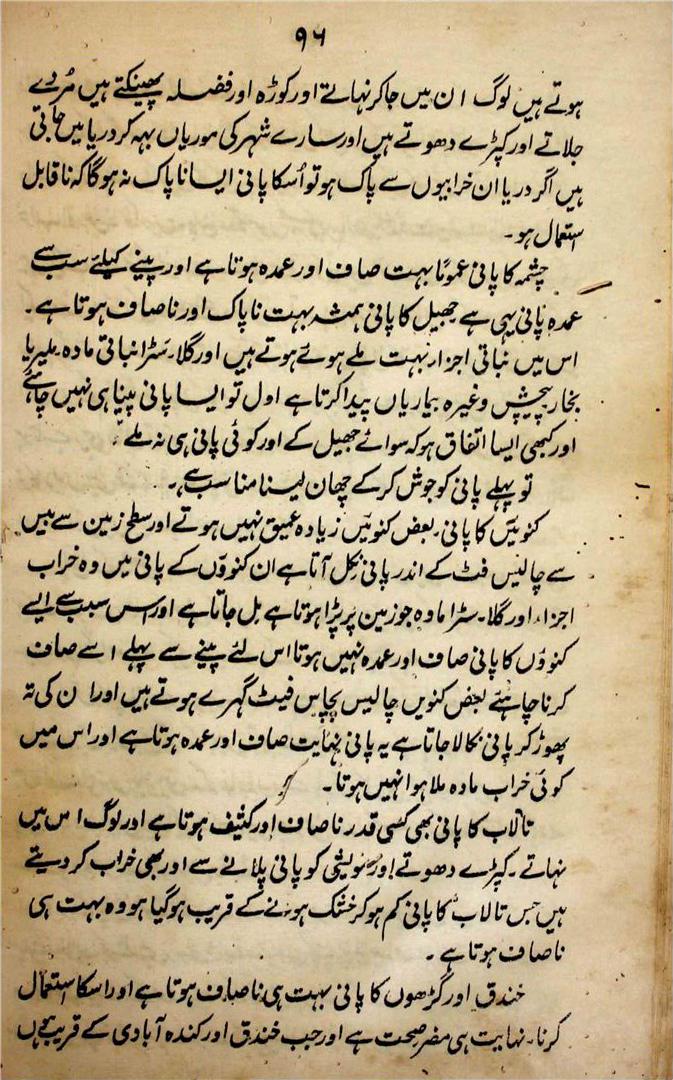 ۹۶
ہوتے ہیں لوگ ان میں جا کر نہاتے اور کوڑہ اور فضلہ پھینکتے ہیں مُردے
جلاتے اور کپڑے دھوتے ہیں اور سارے شہر کی موریاں بہہ کر دریا میں جاتی
ہیں اگر دریا ان خرابیوں سے پاک ہو تو اُسکا پانی ایسا ناپاک نہ ہوگا کہ ناقابل
استعمال ہو۔
چشمہ کا پانی عموماً بہت صاف اور عمدہ ہوتا ہے اور پینے کیلئے سب سے
عمدہ پانی یہی ہے جھیل کا پانی ہمشہ بہت ناپاک اور ناصاف ہوتا ہے۔
اس میں نباتی اجزار بہت ملے ہوئے ہوتے ہیں اور گلا۔سٹرا نباتی مادہ۔ملیریا
بخار پیچش وغیرہ بیماریاں پیدا کرتا ہے اول تو ایسا پانی پینا ہی نہیں چاہئے
اور کبھی ایسا اتفاق ہو کہ سوائے جھیل کے اور کوئی پانی ہی نہ ملے
تو پہلے پانی کو جوش کر کے چھان لینا مناسب ہے۔
کنوئیں کا پانی۔بعض کنوئیں زیادہ عمیق نہیں ہوتے اور سطح زمین سے بیس
سے چالیس فٹ کے اندر پانی نکل آتا ہے ان کنوؤں کے پانی میں وہ خراب
اجزاء اور گلا۔سٹرا مادہ جو زمین پر پڑا ہوتا ہے مل جاتا ہے اور اس سبب سے ایسے
کنوؤں کا پانی صاف اور عمدہ نہیں ہوتا اس لئے پینے سے پہلے اسے صاف
کرنا چاہئے بعض کنویں چالیس پچاس فیٹ گہرے ہوتے ہیں اور ان کی تہ
پھوڑ کر پانی نکالا جاتا ہے یہ پانی نہایت صاف اور عمدہ ہوتا ہے اور اس میں
کوئی خراب مادہ ملا ہوا نہیں ہوتا۔
تالاب کا پانی بھی کسی قدر ناصاف اور کثیف ہوتا ہے اور لوگ اس میں
نہاتے۔کپڑے دھوتے اور مویشی کو پانی پلانے سے اور بھی خراب کر دیتے
ہیں جس تالاب کا پانی کم ہو کر خشک ہونے کے قریب ہو گیا ہو وہ بہت ہی
ناصاف ہوتا ہے۔
خندق اور گڑھوں کا پانی بہت ہی ناصاف ہوتا ہے اور اسکا استعمال
کرنا۔نہایت ہی مضر صحت ہے اور جب خندق اور کندہ آبادی کے قریب ہوں